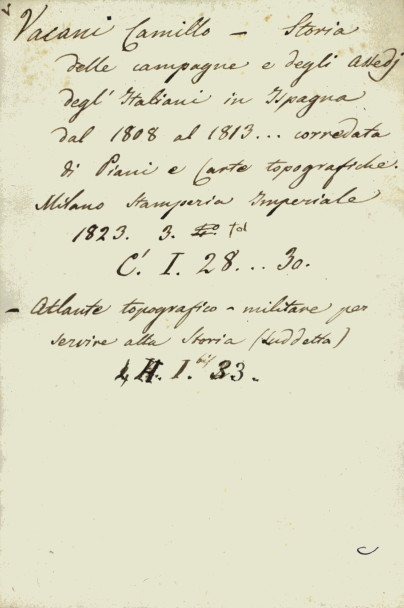 Vacani Camillo — Storia
delle campagne e degli assedj
degl'Italiani in Ispagna
dal 1808 al 1813... corredata
di Piani e Carte topografiche.
Milano Stamperia Imperiale
1823. 3. fol
C'. I. 28... 30.
— Atlante topografico-militare per
servire alla Storia (suddetta)
H. I. bis 33.